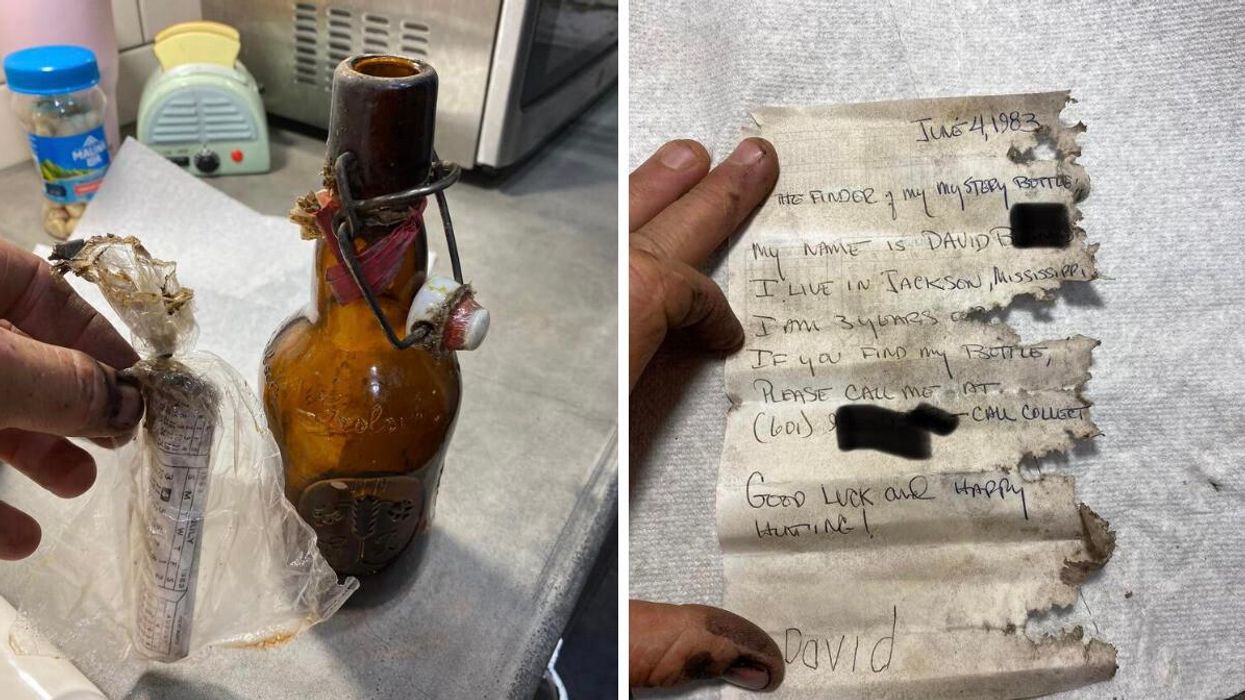 MAUNA
JUNE 4, 1983
THE FINDER of my MYSTERY BOTTLE,
MY NAME IS DAVID B
I LIVE IN JACKSON, MISSISSIPPI,
I AM 3 YEARS
IF YOU FIND MY BOTTLE,
PLEASE CALL ME AT
(601) - CALL COLLECT
GOOD LUCK and HAPPY
HUNTING!
David